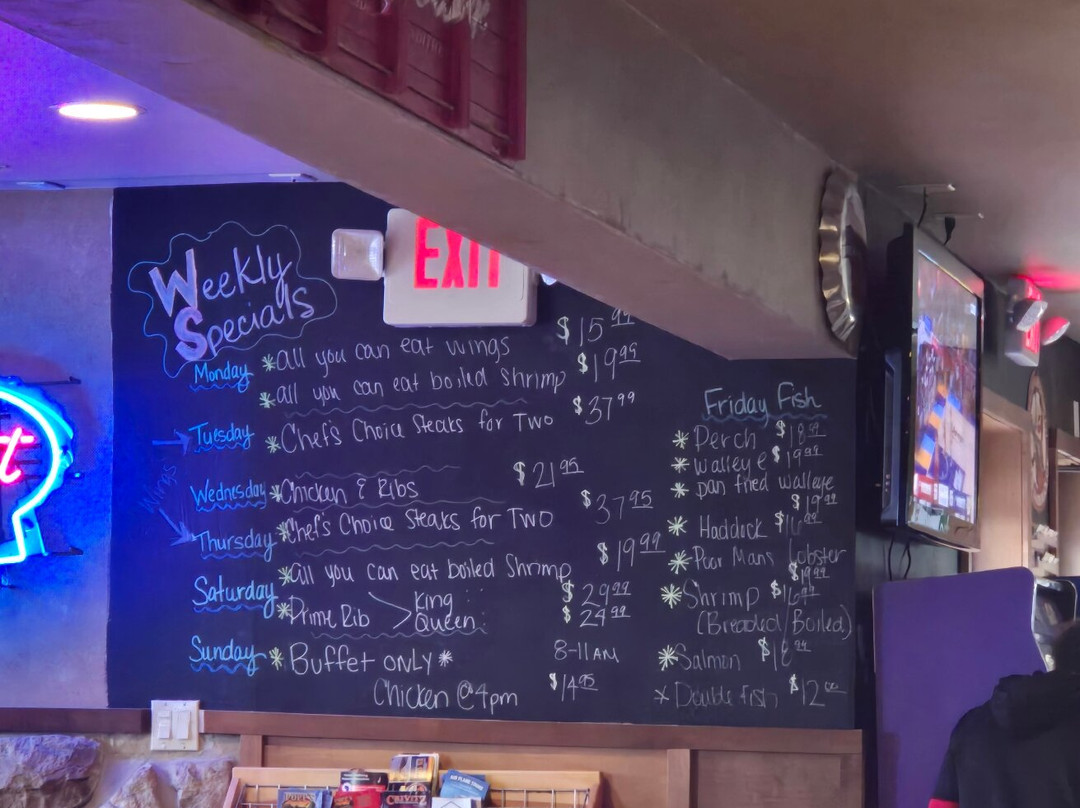 EXIT
Weekly
Specials
Monday *all you can eat wings $15.99
*all you can eat boiled shrimp $19.99
Tuesday *Chef's Choice Steaks for Two $37.99
Wings
Wednesday *Chicken & Ribs $21.95
Thursday *Chef's Choice Steaks for Two $37.95
*all you can eat boiled Shrimp $19.99
Saturday *Prime Rib > King $29.99
Queen $24.99
Sunday *Buffet ONLY* 8-11AM
Chicken @4pm $14.95
Friday Fish
*Perch $18.99
*Walleye $19.99
*pan fried Walleye
$19.99
*Haddock
*Poor Mans Lobster
$19.99
*Shrimp
(Breaded/Boiled)
*Salmon
*Double fish $12.00